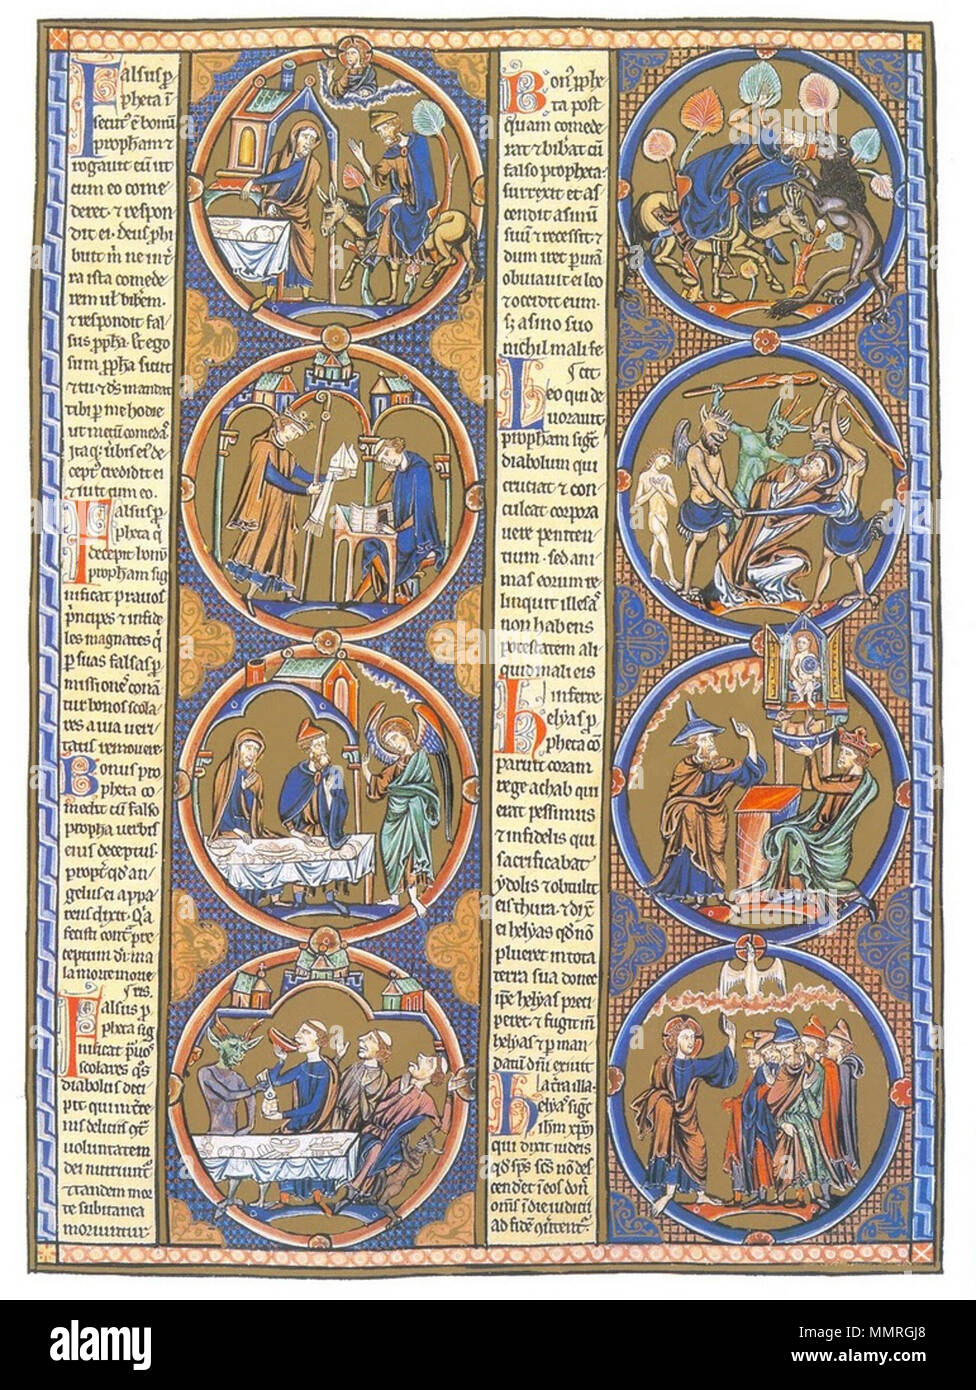 Falsus p
pheta i
secut' e bonū
propham &
rogavit eū ut
cum eo come
deret · & respon
dit ei · deus phi
buit m̄ ne ītͣ
ra ista comede
rem ul' bibēm
& respondit fal
sus pp̄ha · & ego
sum pp̄ha sicut
& tu & dn̄s mandat
tibi p me hodie
ut mecū comedͣs
Ita q; verbis eī de
cept' credidit ei
& fuit cum eo.
Falsus p
pheta q
decepit bonū
propham sig
nificat pravos
p̄ncipes & infide
les magnates q
p suas falsas p
missiones conā
tur bonos scola
res a via veri
tatis removere
Bonus pro
pheta co
medit cū falso
propha verbis
eius deceptus.
propt' qd an
gelus ei appa
rens dixit · Qͣ
fecisti contͣ pre
ceptum di · ma
la morte morie
ris.
Falsus p
pheta sig
nificat p̄vos
scolares qͦs
diabolus deci
pit qui int'ce
ius deliciis cōtͣ
voluntatem
dei nutriunt'
& tandem mor
te subitanea
moriuntur
Bon' pphe
ta post
quam comede
rat & bibat cū
falso propheta ·
surrexit et as
cendit asinū
suū & recessit · &
dum iret p viam
obviavit ei leo
& occidit eum ·
s; asino suo
nichil mali fe
cit
Leo qui de
voravit
propham siḡt
diabolum qui
cruciat & con
culcat corpora
vere peniten
tium · sed ani
mas eorum re
linquit illesas
non habens
potestatem ali
quid mali eis
inferre
helyas p
pheta co
paruit coram
rege achab qui
erat pessimus
& infidelis qui
sacrificabat
ydolis & obtulit
eis thura · & dix̄
ei helyas qd nō
plueret in tota
terra sua donec
ipe helyas preci
peret · & fugit īn
helyas & p man
datū dn̄i exivit
t'ra illa ·
helyas siḡt
ihm xp̄m
qui dixit iudeis
qd sp̄s sc̄s nō des
cendet i eos don'
om̄s i die iudicii
ad fidē 9vertent'
alamy
Image ID: MMRGJ8
www.alamy.com